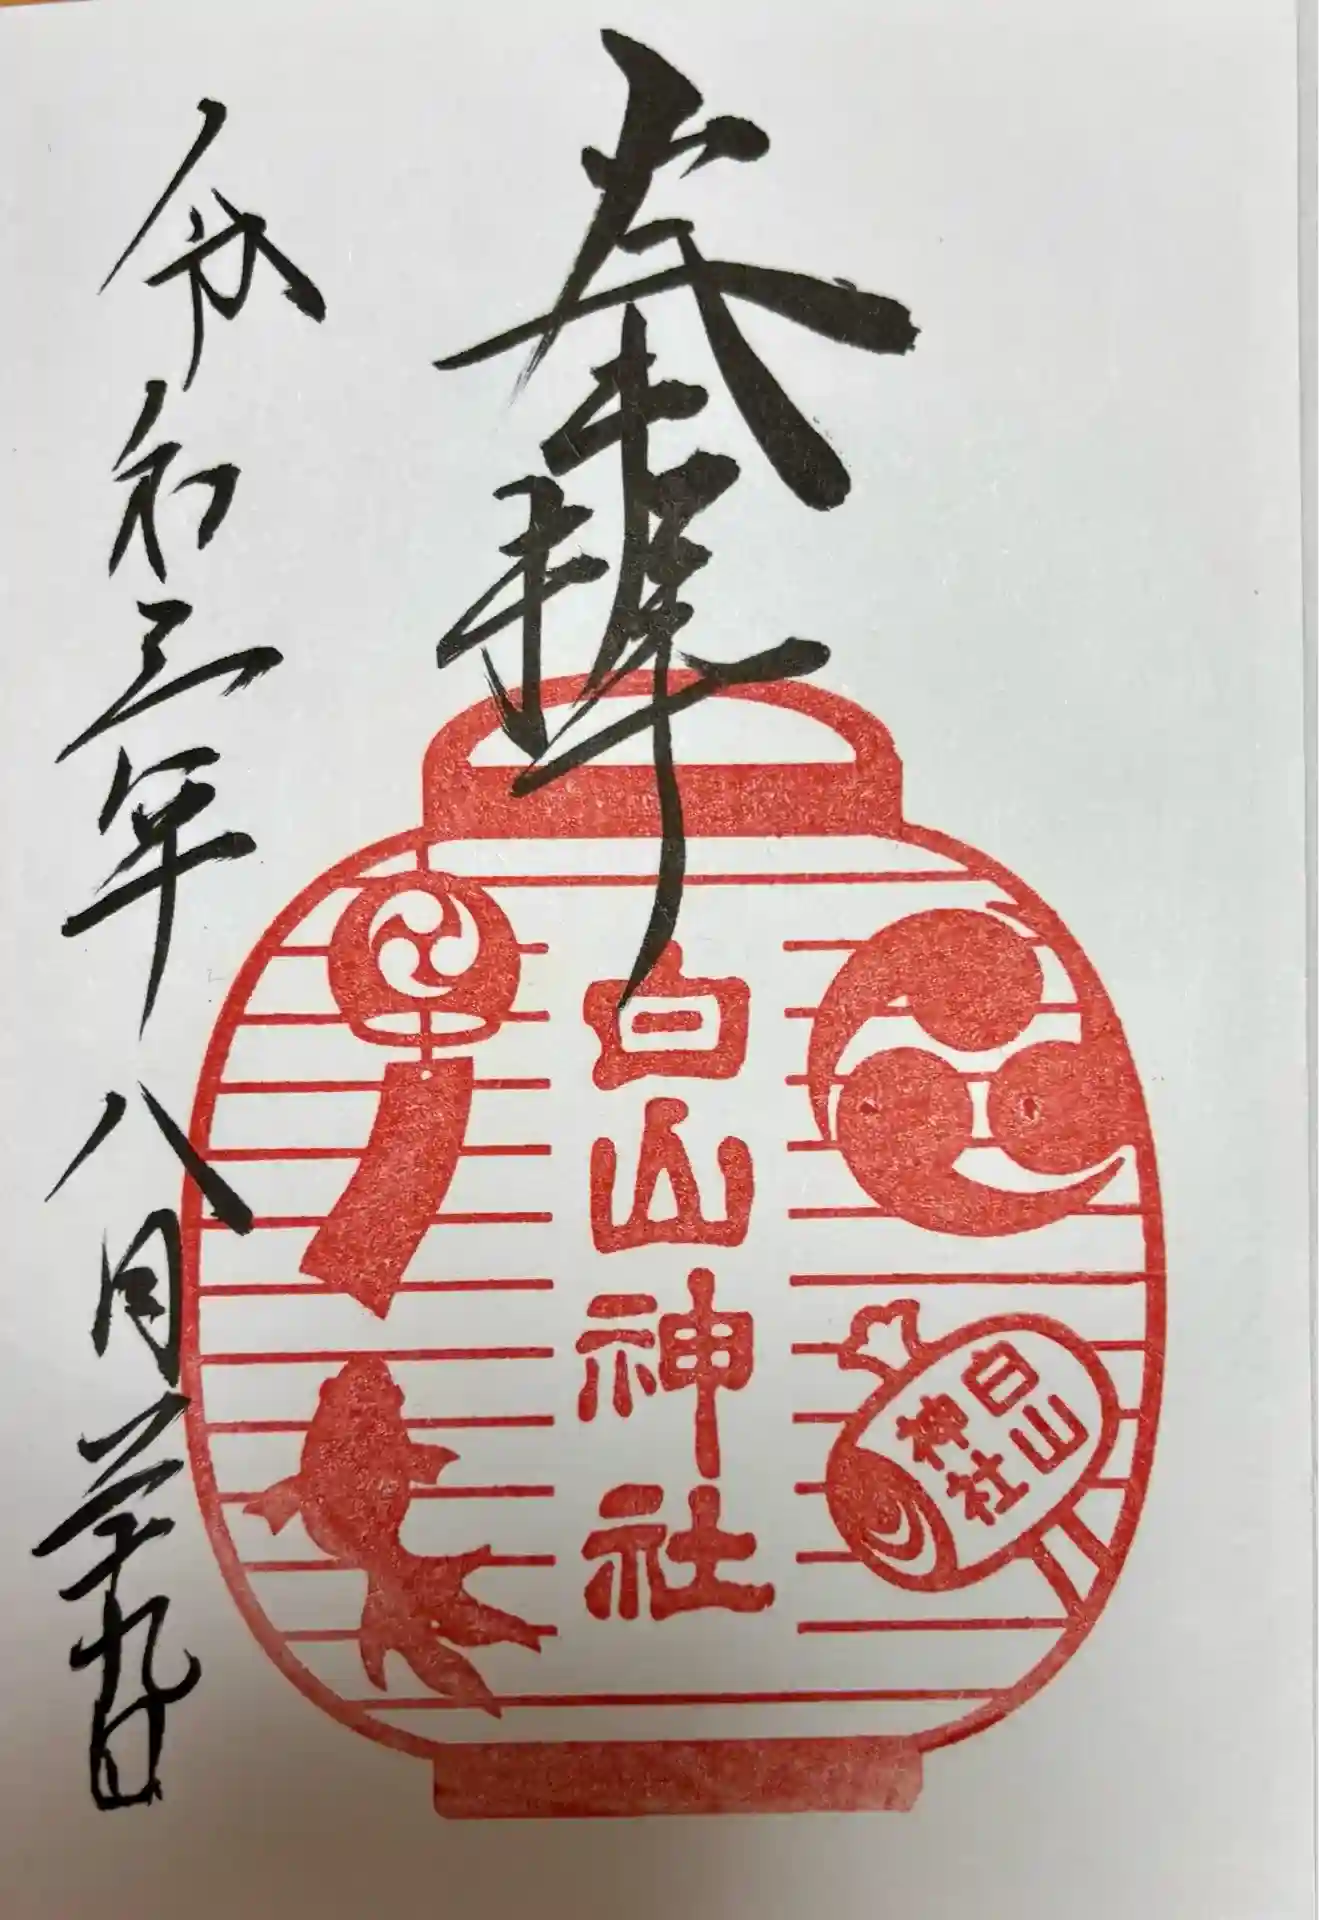 奉拝
白山神社
白山
神社
令和三年八月二十九日